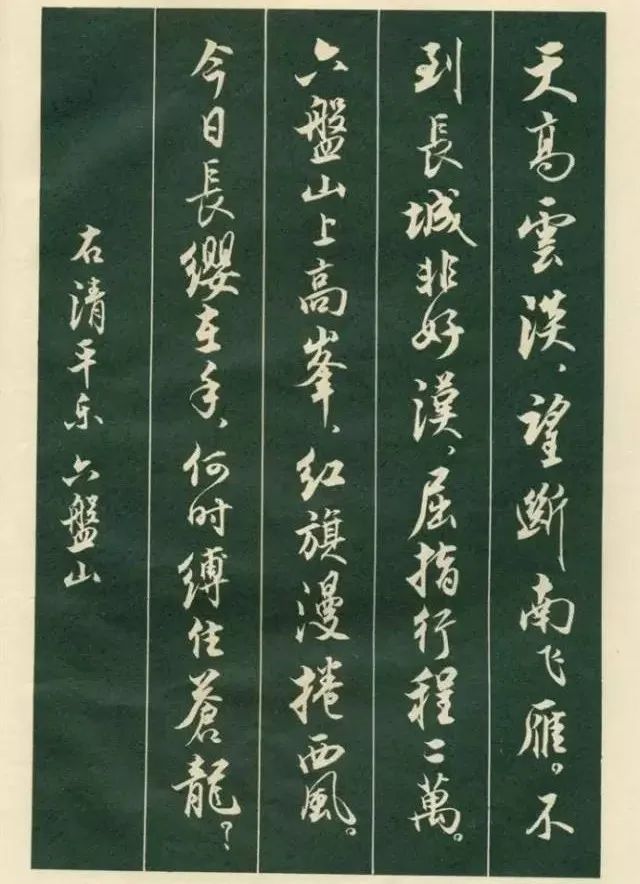 天高雲淡，望斷南飞雁。不
到長城非好漢，屈指行程二萬。
六盤山上高峯，红旗漫捲西風。
今日長缨在手，何时縛住蒼龍？
右清平乐 六盤山